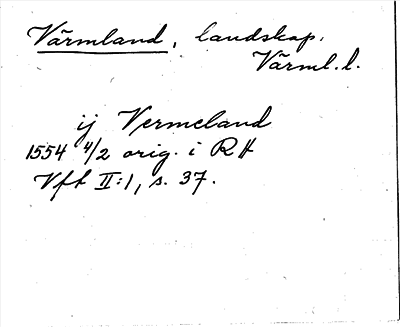 Värmland, landskap.
Värml. l.
ij Vermeland
1554 4/2 orig. i RA
Vft II:1, s. 37.